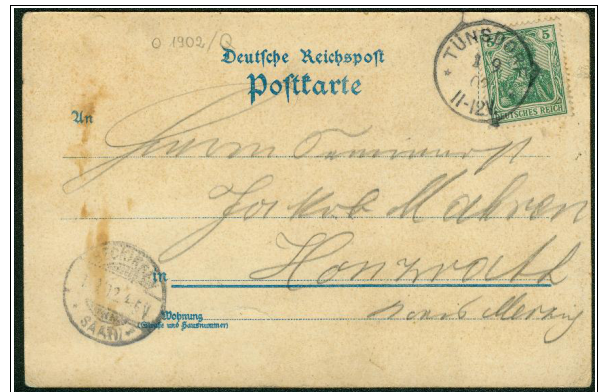 O 1902/Q
Deutsche Reichspost
Postkarte
TÜNSDORF
9
11-12V
5
DEUTSCHES REICH
An
Herrn
Jakob Mahren
in Honzrath
Kreis Merzig
Wohnung
(Straße und Hausnummer)
(SAAR)